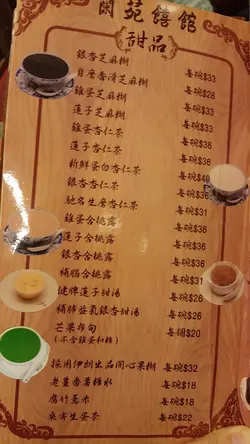 閑苑饎館
甜品
銀杏芝麻糊 每碗$33
自磨香滑芝麻糊 每碗$28
雞蛋芝麻糊 每碗$33
蓮子芝麻糊 每碗$33
雞蛋杏仁茶 每碗$36
蓮子杏仁茶 每碗$36
新鮮蛋白杏仁茶 每碗$40
銀杏杏仁茶 每碗$36
馳名生磨杏仁茶 每碗$31
雞蛋合桃露 每碗$36
蓮子合桃露 每碗$36
銀杏合桃露 每碗$36
補腦合桃露 每碗$31
健脾蓮子甜湯 每碗$28
補肺益氣銀杏甜湯 每碗$28
芒果布甸 每個$20
(不含雞蛋和糖)
採用伊朗出品開心果糊 每碗$32
老薑番薯糖水 每碗$18
腐竹薏米 每碗$18
桑寄生蛋茶 每碗$22